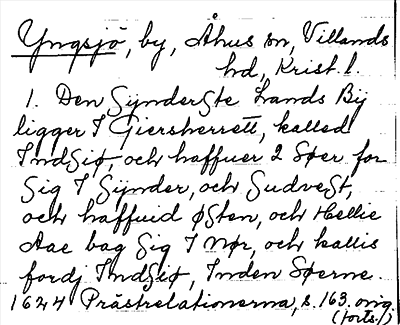 Yngsjö, by, Åhus sn, Villands
hd, Krist. l.
1. Den Synderste Lands By
ligger I Giersherrett, kalled
Indsiø, och haffuer 2 Søer for
sig I Synder, och Sudvest,
och haffuid Østen, och Hellie
Aae bag sig I Nør, och kallis
fordj Indsiø, Inden Søerne
1624 Prästrelationerna, s. 163. orig
(forts.!)